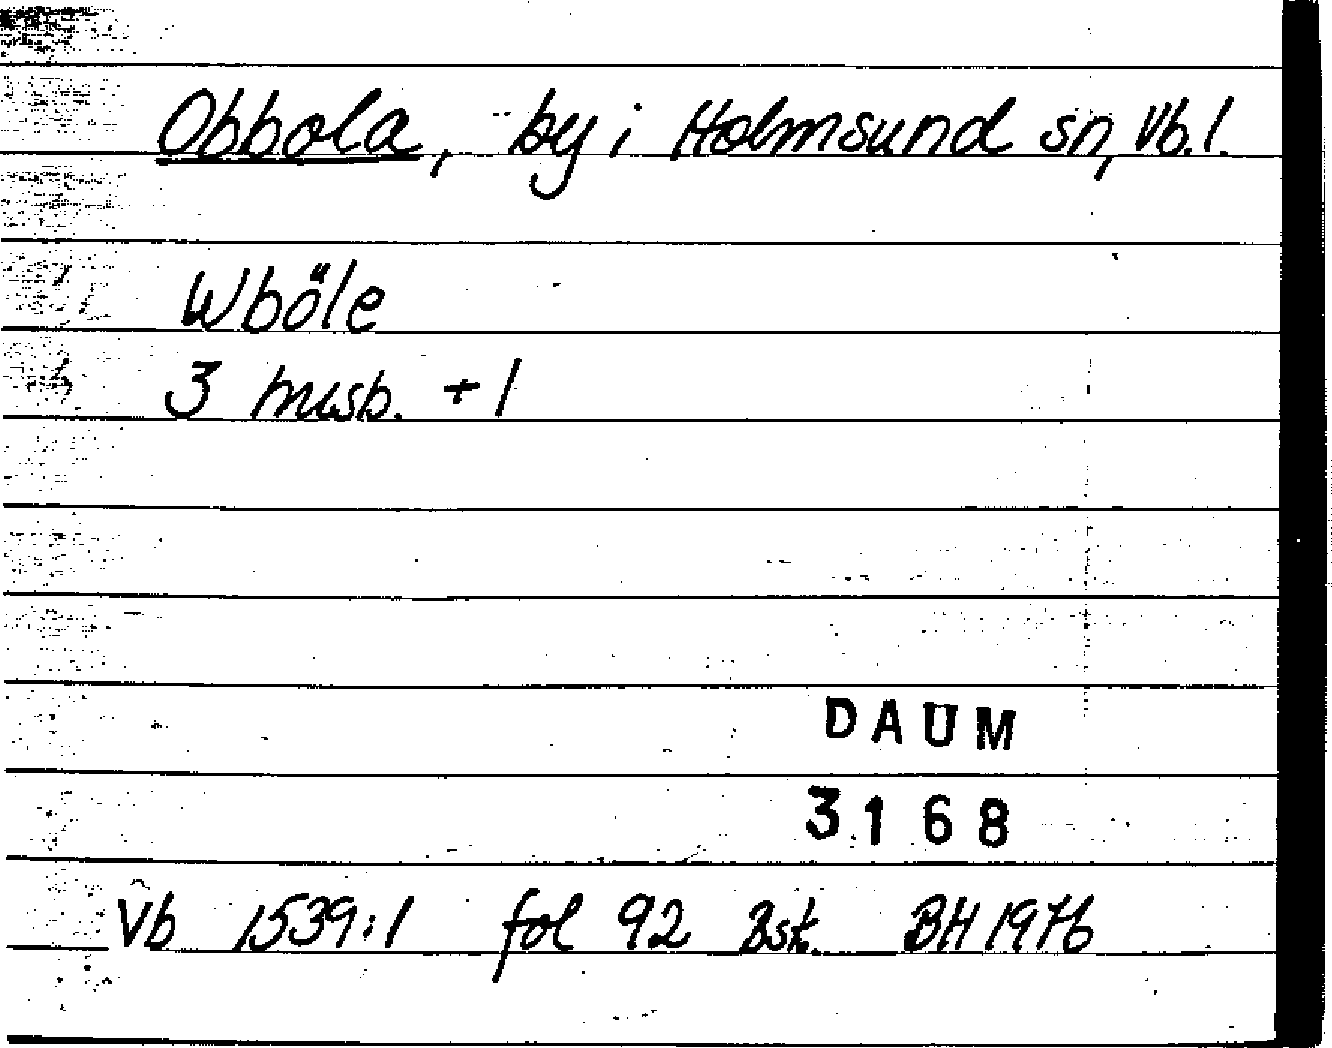 Obbola, by i Holmsund sn, Vb.l.
Wböle
3 mesb. + 1
DAUM
3168
Vb 1539:1 fol 92 Bsk. BH 1976